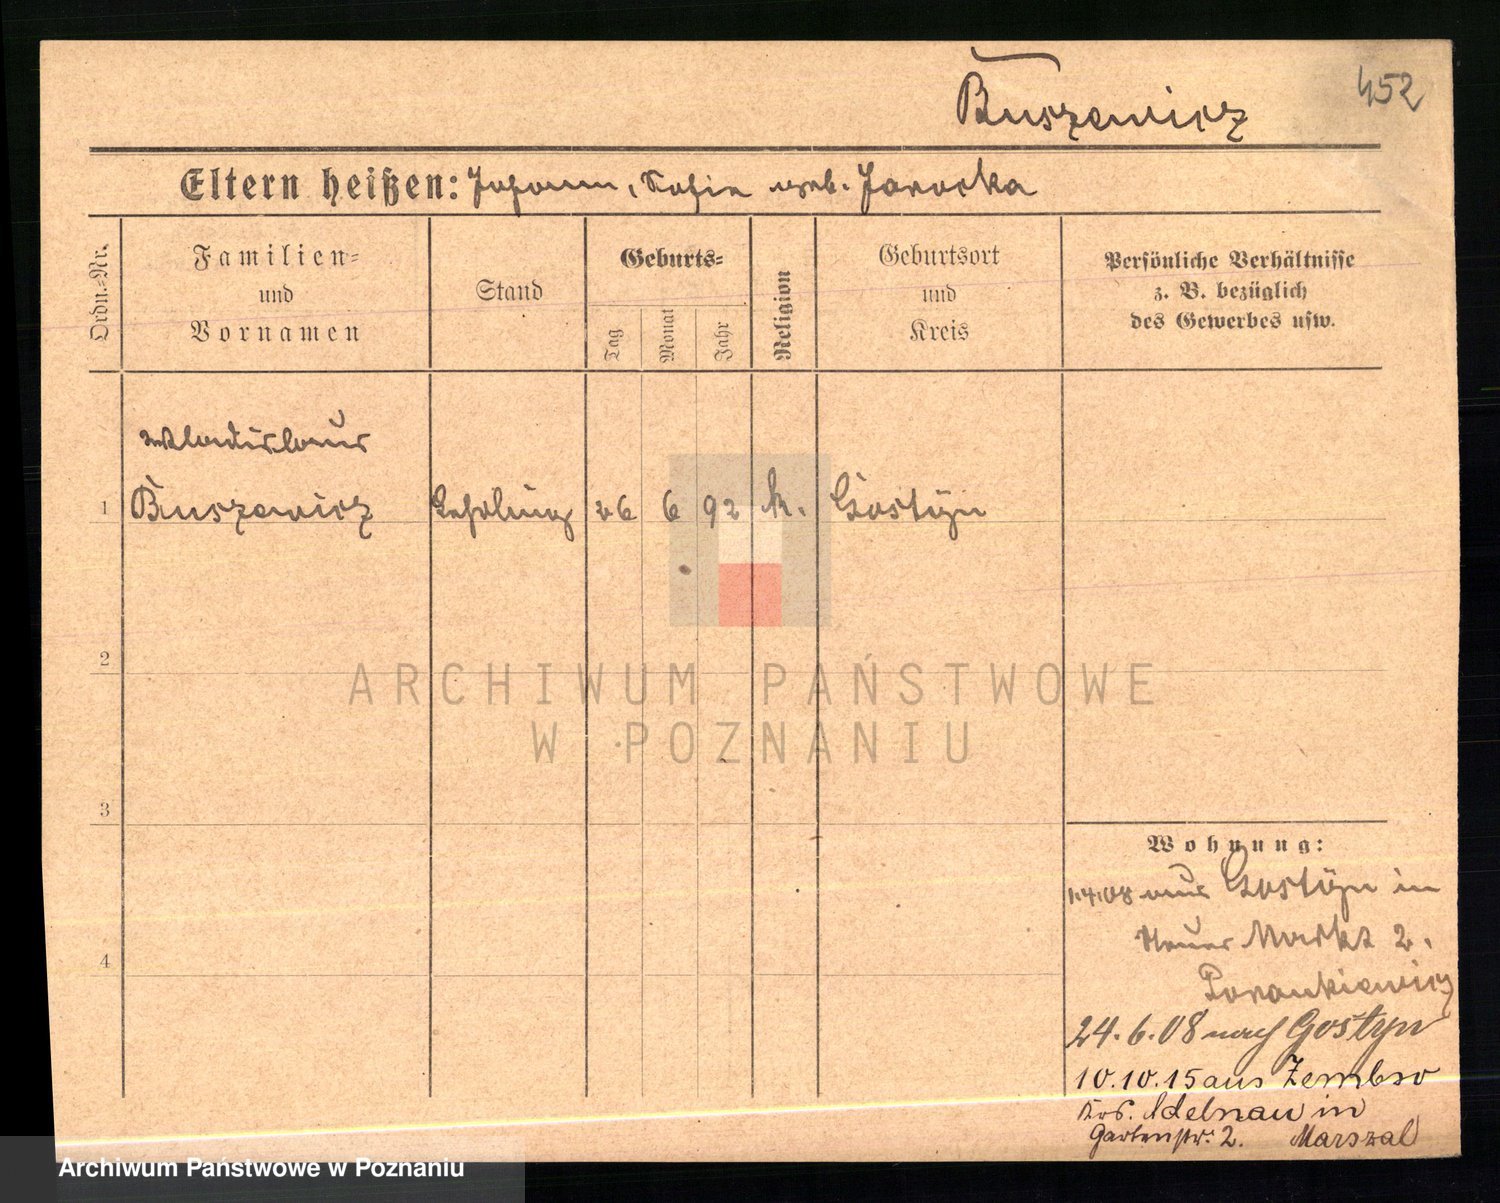 452
Buszewicz
Eltern heißen: Johann, Sofia geb. Jarocka
Ordn.-Nr.
Familien-
und
Vornamen
Stand
Geburts-
Tag
Monat
Jahr
Religion
Geburtsort
und
Kreis
Persönliche Verhältnisse
z. B. bezüglich
des Gewerbes usw.
Wladislaus
1 Buszewicz Lehrling 26 6 92 k. Gostyn
2
3
4
ARCHIWUM PAŃSTWOWE
W POZNANIU
Wohnung:
1.4.08 aus Gostyn in
Neuer Markt 2.
24.6.08 nach Gostyn
10.10.15 aus Zembzo
Krs. Adelnau in
Gartenstr. 2. Marszal
Archiwum Państwowe w Poznaniu